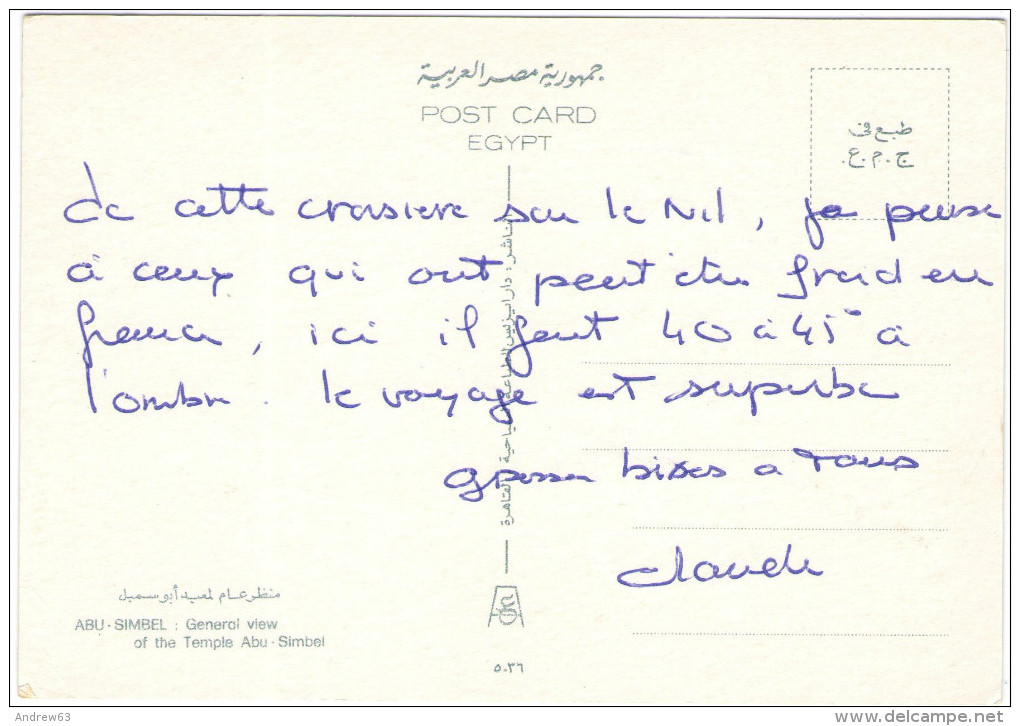 جمهورية مصر العربية
POST CARD
EGYPT
طبع فى
ج.م.ع.
de cette croisiere sur le Nil, je pense
à ceux qui ont peut être froid en
france, ici il fait 40 à 45° à
l'ombre. le voyage est superbe
grosses bises a tous
claude
منظر عام لمعبد أبو سمبل
ABU-SIMBEL : General view
of the Temple Abu-Simbel
٥٠٣٦
Andrew63
delcampe.net